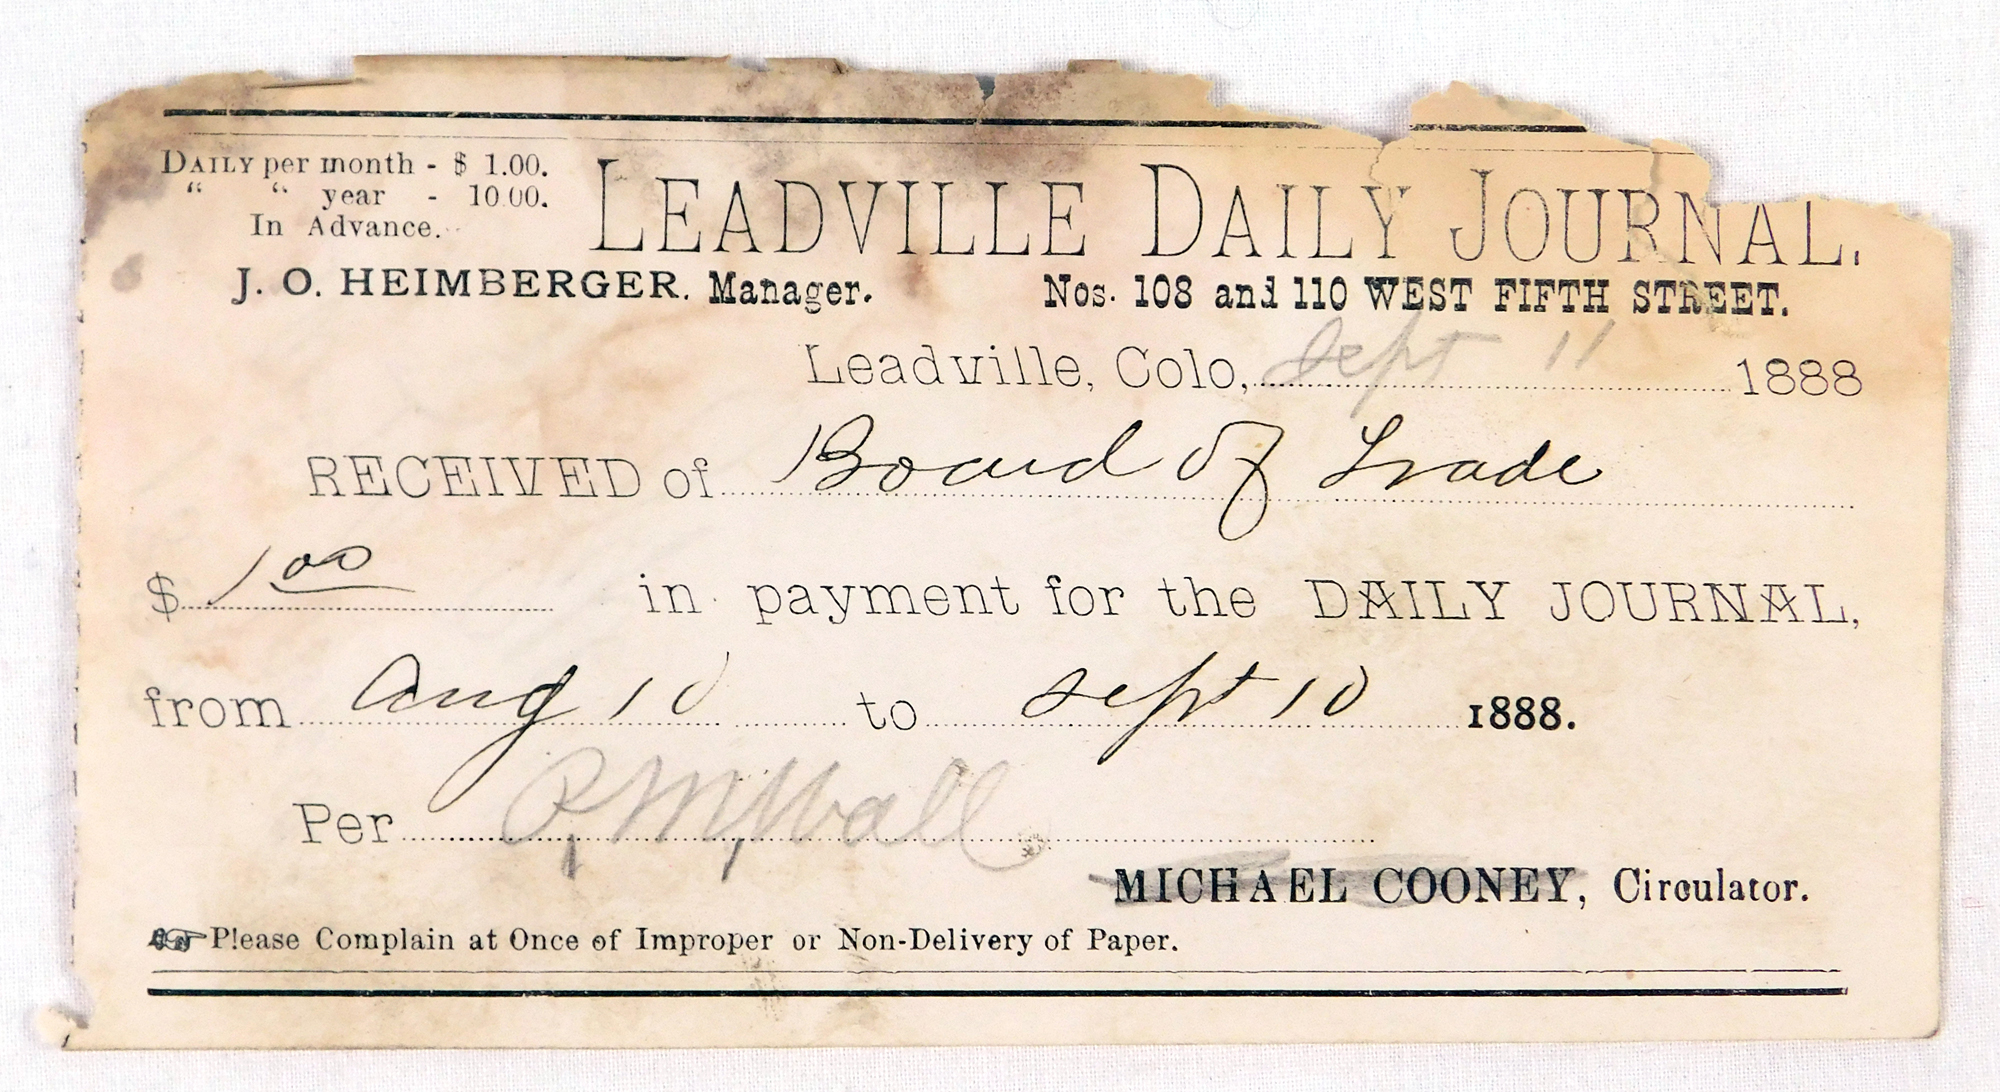 DAILY per month - $ 1.00.
“ “ year - 10.00.
In Advance.
LEADVILLE DAILY JOURNAL.
J. O. HEIMBERGER. Manager. Nos. 108 and 110 WEST FIFTH STREET.
Leadville, Colo, Sept 11 1888
RECEIVED of Board of Trade
$ 1 00 in payment for the DAILY JOURNAL,
from Aug 10 to Sept 10 1888.
Per
MICHAEL COONEY, Circulator.
☞ Please Complain at Once of Improper or Non-Delivery of Paper.